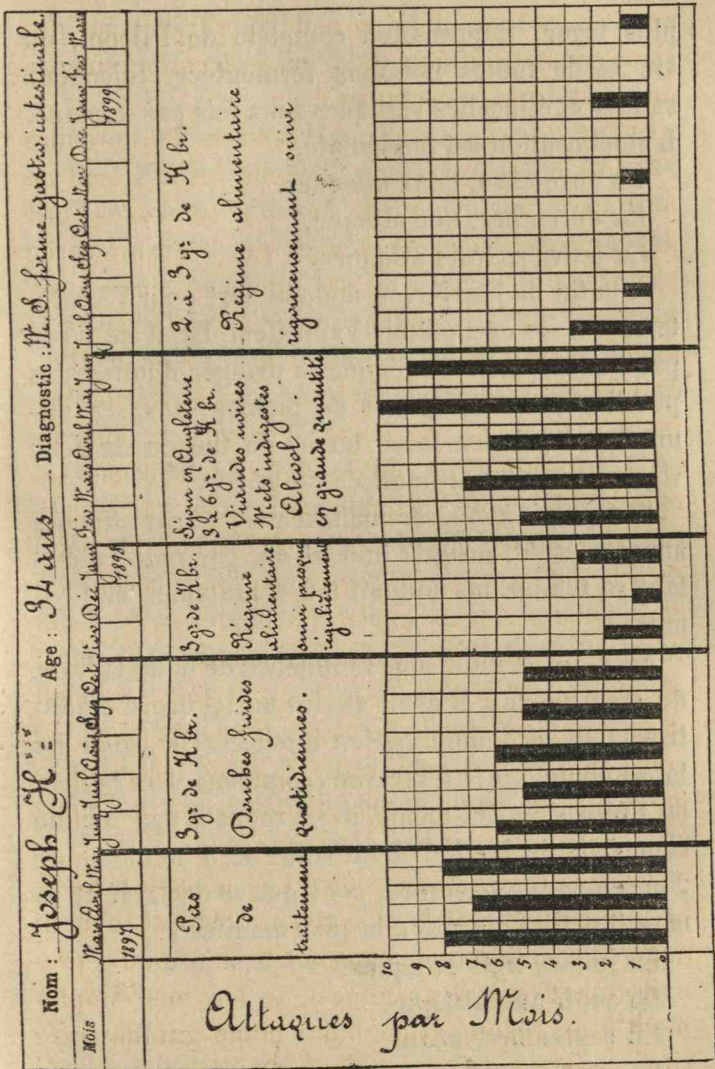 Nom : Joseph H*** Age : 34 ans Diagnostic : M. S. forme gastro-intestinale.
Mois Mars Avril Mai Juin Juil Août Sep Oct Nov Déc Janv Fév Mars Avril Mai Juin Juil Août Sep Oct Nov Déc Janv Fév Mars
1897 1898 1899
Pas
de
traitement
3 gr. de K br.
Douches froides
quotidiennes.
3 gr. de K br.
Régime
alimentaire
suivi presque
régulièrement
Séjour en Angleterre
3 à 6 gr. de K br.
Viandes noires
Mets indigestes
Alcool
en grande quantité
2 à 3 gr. de K br.
Régime alimentaire
rigoureusement suivi
10
9
8
7
6
5
4
3
2
1
0
Attaques par Mois.